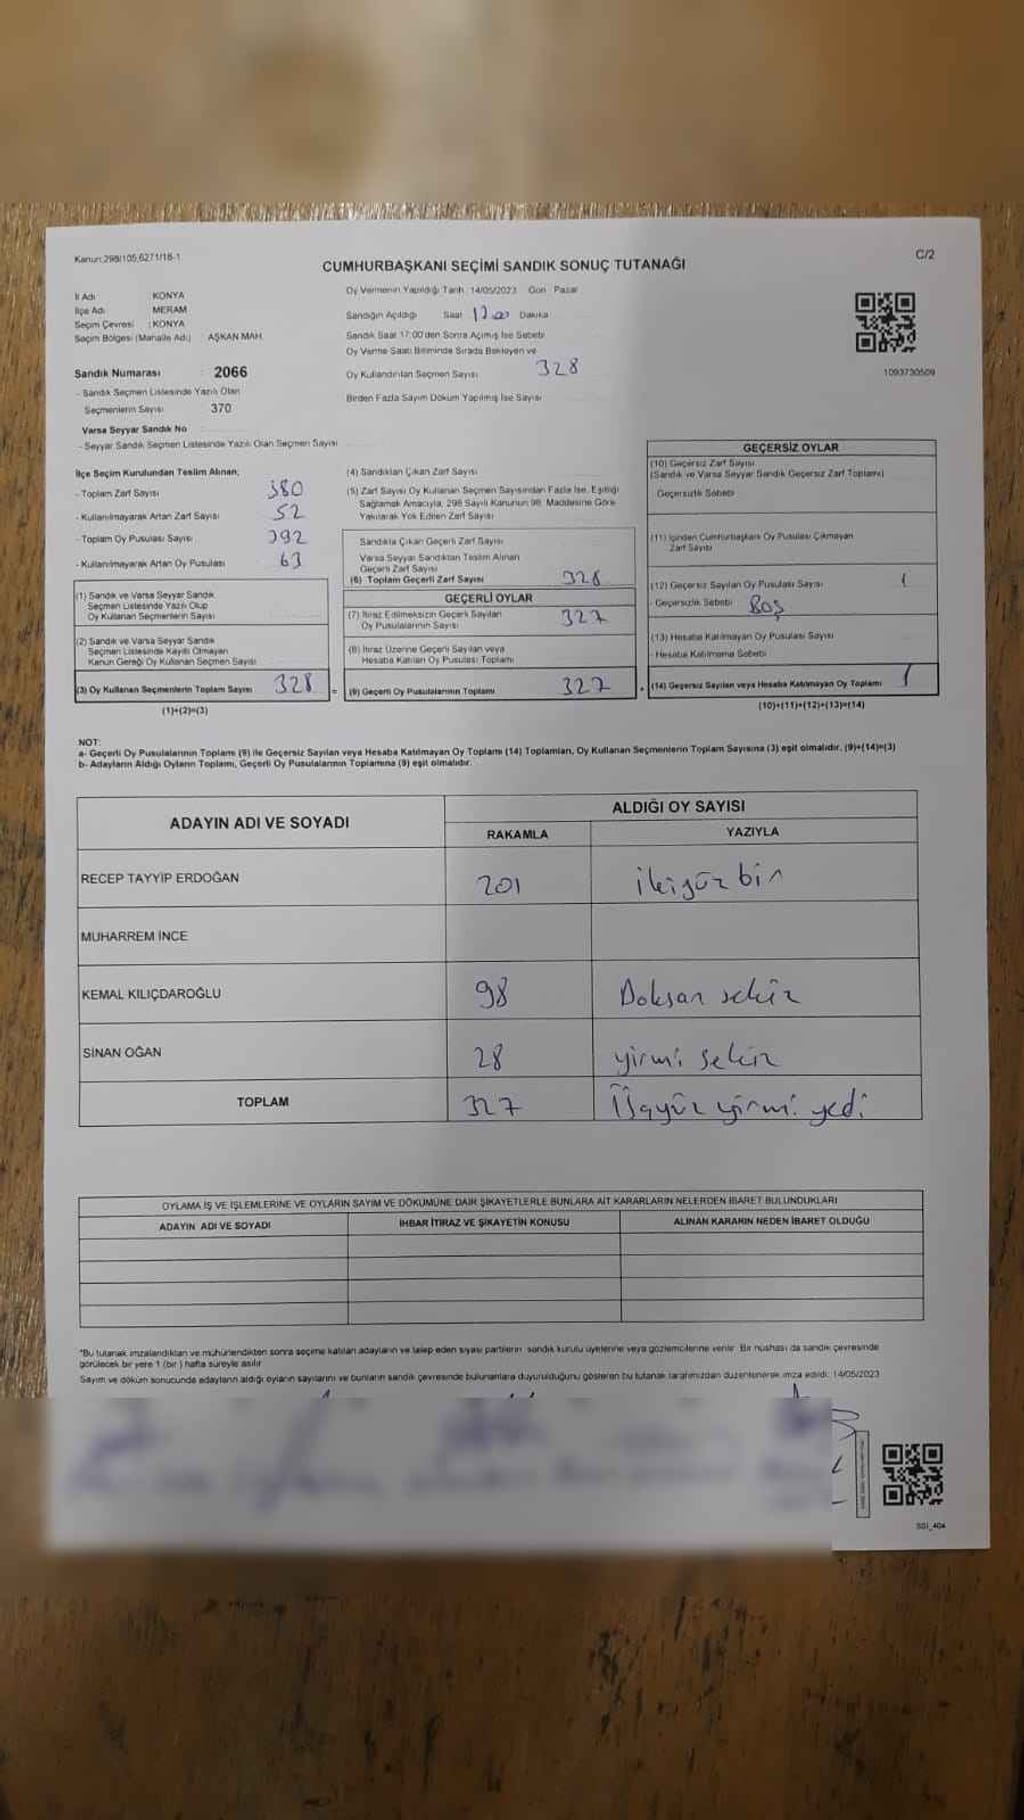 Kanun:298/105,6271/18-1
C/2
CUMHURBAŞKANI SEÇİMİ SANDIK SONUÇ TUTANAĞI
İl Adı : KONYA
İlçe Adı : MERAM
Seçim Çevresi : KONYA
Seçim Bölgesi (Mahalle Adı) : AŞKAN MAH.
Sandık Numarası : 2066
- Sandık Seçmen Listesinde Yazılı Olan
Seçmenlerin Sayısı 370
Varsa Seyyar Sandık No
- Seyyar Sandık Seçmen Listesinde Yazılı Olan Seçmen Sayısı
Oy Vermenin Yapıldığı Tarih: 14/05/2023 Gün: Pazar
Sandığın Açıldığı Saat Dakika
Sandık Saat 17:00'den Sonra Açılmış İse Sebebi
Oy Verme Saati Bitiminde Sırada Bekleyen ve
Oy Kullandırılan Seçmen Sayısı 328
Birden Fazla Sayım Döküm Yapılmış İse Sayısı
1093730509
İlçe Seçim Kurulundan Teslim Alınan;
- Toplam Zarf Sayısı 380
- Kullanılmayarak Artan Zarf Sayısı 52
- Toplam Oy Pusulası Sayısı 392
- Kullanılmayarak Artan Oy Pusulası 63
(1) Sandık ve Varsa Seyyar Sandık
Seçmen Listesinde Yazılı Olup
Oy Kullanan Seçmenlerin Sayısı
(2) Sandık ve Varsa Seyyar Sandık
Seçmen Listesinde Kayıtlı Olmayan
Kanun Gereği Oy Kullanan Seçmen Sayısı
(3) Oy Kullanan Seçmenlerin Toplam Sayısı 328
(1)+(2)=(3)
(4) Sandıktan Çıkan Zarf Sayısı
(5) Zarf Sayısı Oy Kullanan Seçmen Sayısından Fazla İse, Eşitliği
Sağlamak Amacıyla, 298 Sayılı Kanunun 98. Maddesine Göre
Yakılarak Yok Edilen Zarf Sayısı
Sandıkta Çıkan Geçerli Zarf Sayısı
Varsa Seyyar Sandıktan Teslim Alınan
Geçerli Zarf Sayısı
(6) Toplam Geçerli Zarf Sayısı 328
GEÇERLİ OYLAR
(7) İtiraz Edilmeksizin Geçerli Sayılan
Oy Pusulalarının Sayısı 327
(8) İtiraz Üzerine Geçerli Sayılan veya
Hesaba Katılan Oy Pusulası Toplamı
= (9) Geçerli Oy Pusulalarının Toplamı 327
GEÇERSİZ OYLAR
(10) Geçersiz Zarf Sayısı
(Sandık ve Varsa Seyyar Sandık Geçersiz Zarf Toplamı)
Geçersizlik Sebebi
(11) İçinden Cumhurbaşkanı Oy Pusulası Çıkmayan
Zarf Sayısı
(12) Geçersiz Sayılan Oy Pusulası Sayısı 1
- Geçersizlik Sebebi Boş
(13) Hesaba Katılmayan Oy Pusulası Sayısı
- Hesaba Katılmama Sebebi
+ (14) Geçersiz Sayılan veya Hesaba Katılmayan Oy Toplamı 1
(10)+(11)+(12)+(13)=(14)
NOT:
a- Geçerli Oy Pusulalarının Toplamı (9) ile Geçersiz Sayılan veya Hesaba Katılmayan Oy Toplamı (14) Toplamları, Oy Kullanan Seçmenlerin Toplam Sayısına (3) eşit olmalıdır. (9)+(14)=(3)
b- Adayların Aldığı Oyların Toplamı, Geçerli Oy Pusulalarının Toplamına (9) eşit olmalıdır.
ADAYIN ADI VE SOYADI
ALDIĞI OY SAYISI
RAKAMLA YAZIYLA
RECEP TAYYİP ERDOĞAN 201 ikiyüz bir
MUHARREM İNCE
KEMAL KILIÇDAROĞLU 98 Doksan sekiz
SİNAN OĞAN 28 yirmi sekiz
TOPLAM 327 Üçyüz yirmi yedi
OYLAMA İŞ VE İŞLEMLERİNE VE OYLARIN SAYIM VE DÖKÜMÜNE DAİR ŞİKAYETLERLE BUNLARA AİT KARARLARIN NELERDEN İBARET BULUNDUKLARI
ADAYIN ADI VE SOYADI İHBAR İTİRAZ VE ŞİKAYETİN KONUSU ALINAN KARARIN NEDEN İBARET OLDUĞU
*Bu tutanak imzalandıktan ve mühürlendikten sonra seçime katılan adayların ve talep eden siyasi partilerin sandık kurulu üyelerine veya gözlemcilerine verilir. Bir nüshası da sandık çevresinde
görülecek bir yere 1 (bir) hafta süreyle asılır
Sayım ve döküm sonucunda adayların aldığı oyların sayılarını ve bunların sandık çevresinde bulunanlara duyurulduğunu gösteren bu tutanak tarafımızdan düzenlenerek imza edildi. 14/05/2023
S01_404